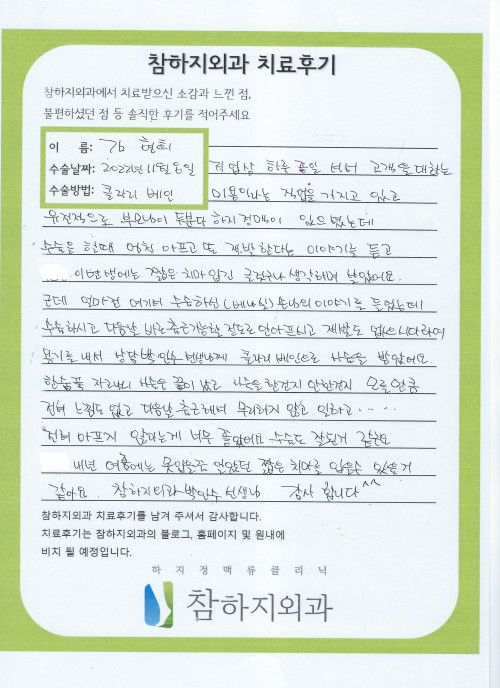 참하지외과 치료후기
참하지외과에서 치료받으신 소감과 느낀 점,
불편하셨던 점 등 솔직한 후기를 적어주세요
이 름: 강 현희
수술날짜: 2022년 11월 8일
수술방법: 클라리 베인
직업상 하루 종일 서서 고객을 대하는
미용이라는 직업을 가지고 있고
유전적으로 부모님이 두분다 하지정맥이 있으셨는데
수술을 한때 엄청 아프고 또 재발한다는 이야기를 듣고
이번생에는 짧은 치마 입긴 글렀구나 생각하며 살았어요.
근데 얼마전 여기서 수술하신 (베나실) 손님의 이야기를 들었는데
수술하시고 다음날 바로 출근가능할정도로 안아프시고 재발도 없으시다하여
용기를 내서 상담 박인수 선생님께 클라리베인으로 시술을 받았어요.
한숨푹 자고나니 시술은 끝이 났고 시술을 한건지 안한건지 모를만큼
전혀 느낌도 없고 다음날 출근해서 무리하지 않고 일하고.....
전혀 아프지 않다는게 너무 좋았어요 수술도 잘된거 같구요
내년 여름에는 못입을줄 알았던 짧은 치마를 입을수 있을거
같아요. 참하지외과 박인수 선생님 감사 합니다^^
참하지외과 치료후기를 남겨 주셔서 감사합니다.
치료후기는 참하지외과의 블로그, 홈페이지 및 원내에
비치 될 예정입니다.
하지정맥류클리닉
참하지외과